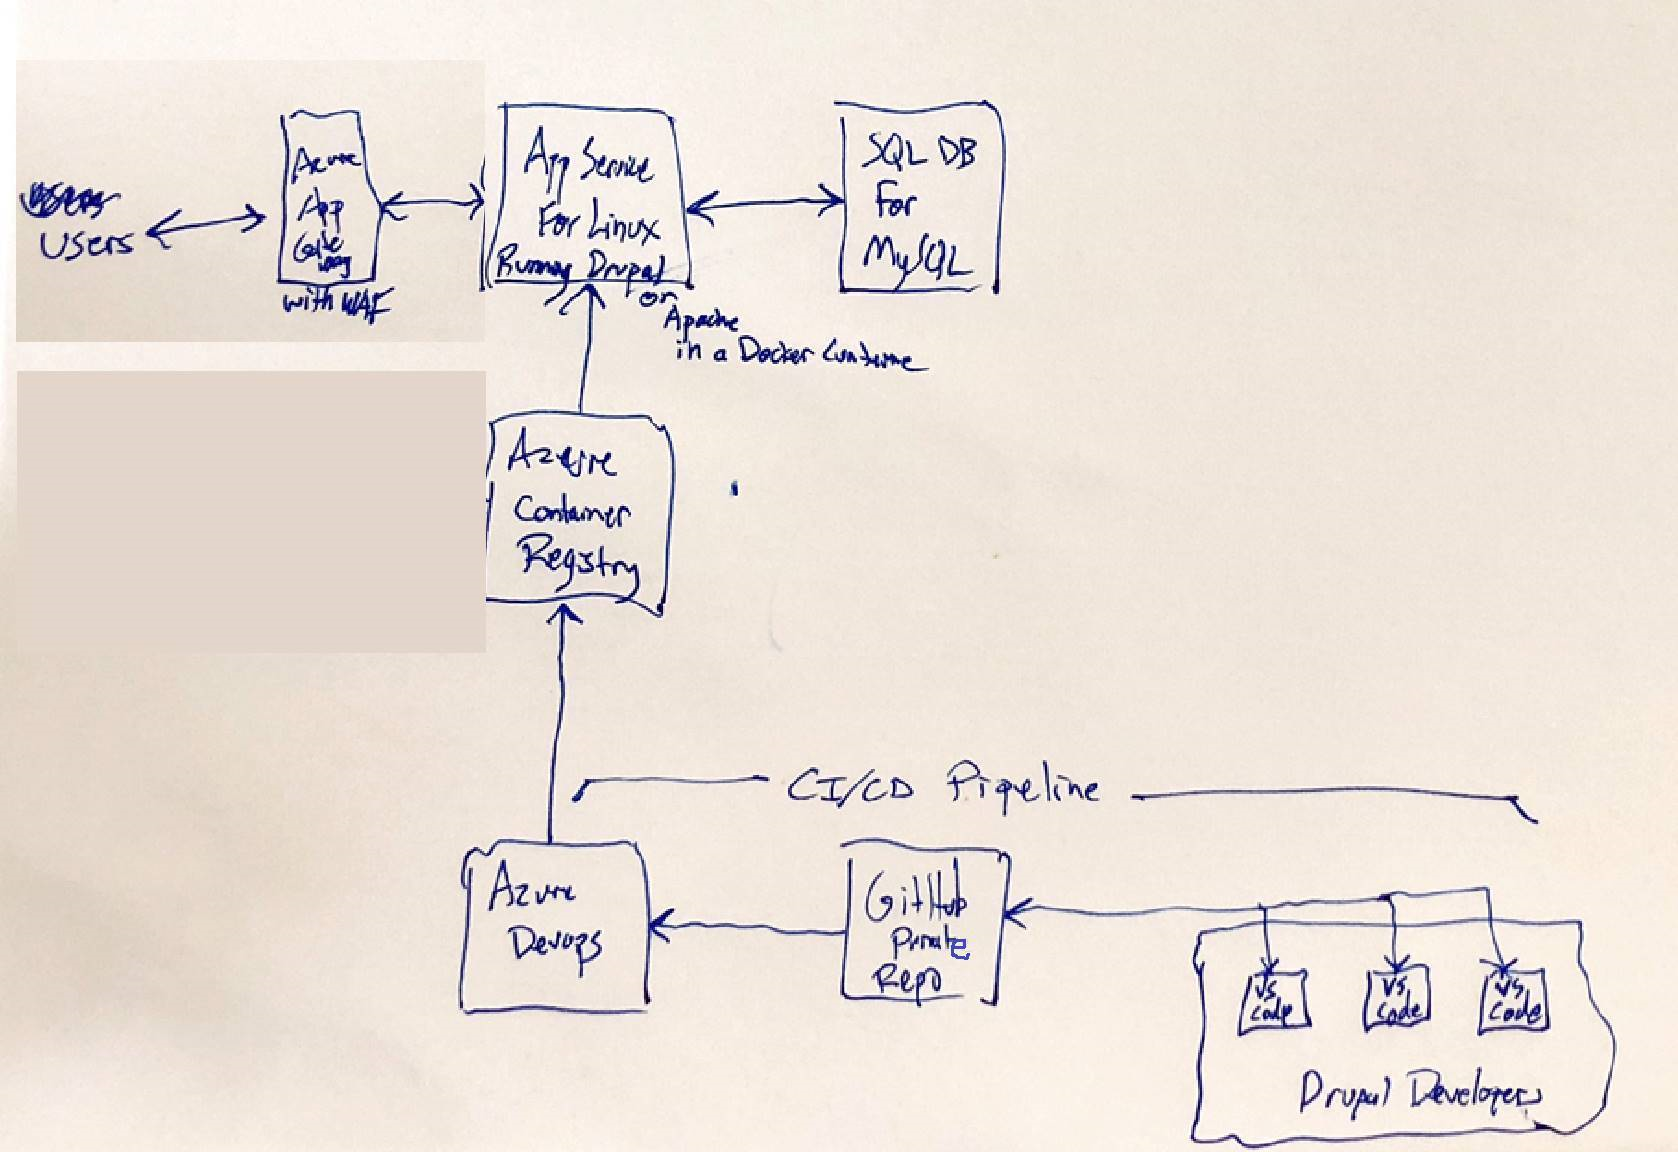 Users
Azure
App
Gate
way
with WAF
App Service
For Linux
Running Drupal
on
Apache
in a Docker
SQL DB
For
MySQL
Azure
Container
Registry
CI/CD Pipeline
Azure
Devops
GitHub
Private
Repo
VS
Code
VS
Code
VS
Code
Drupal Developers